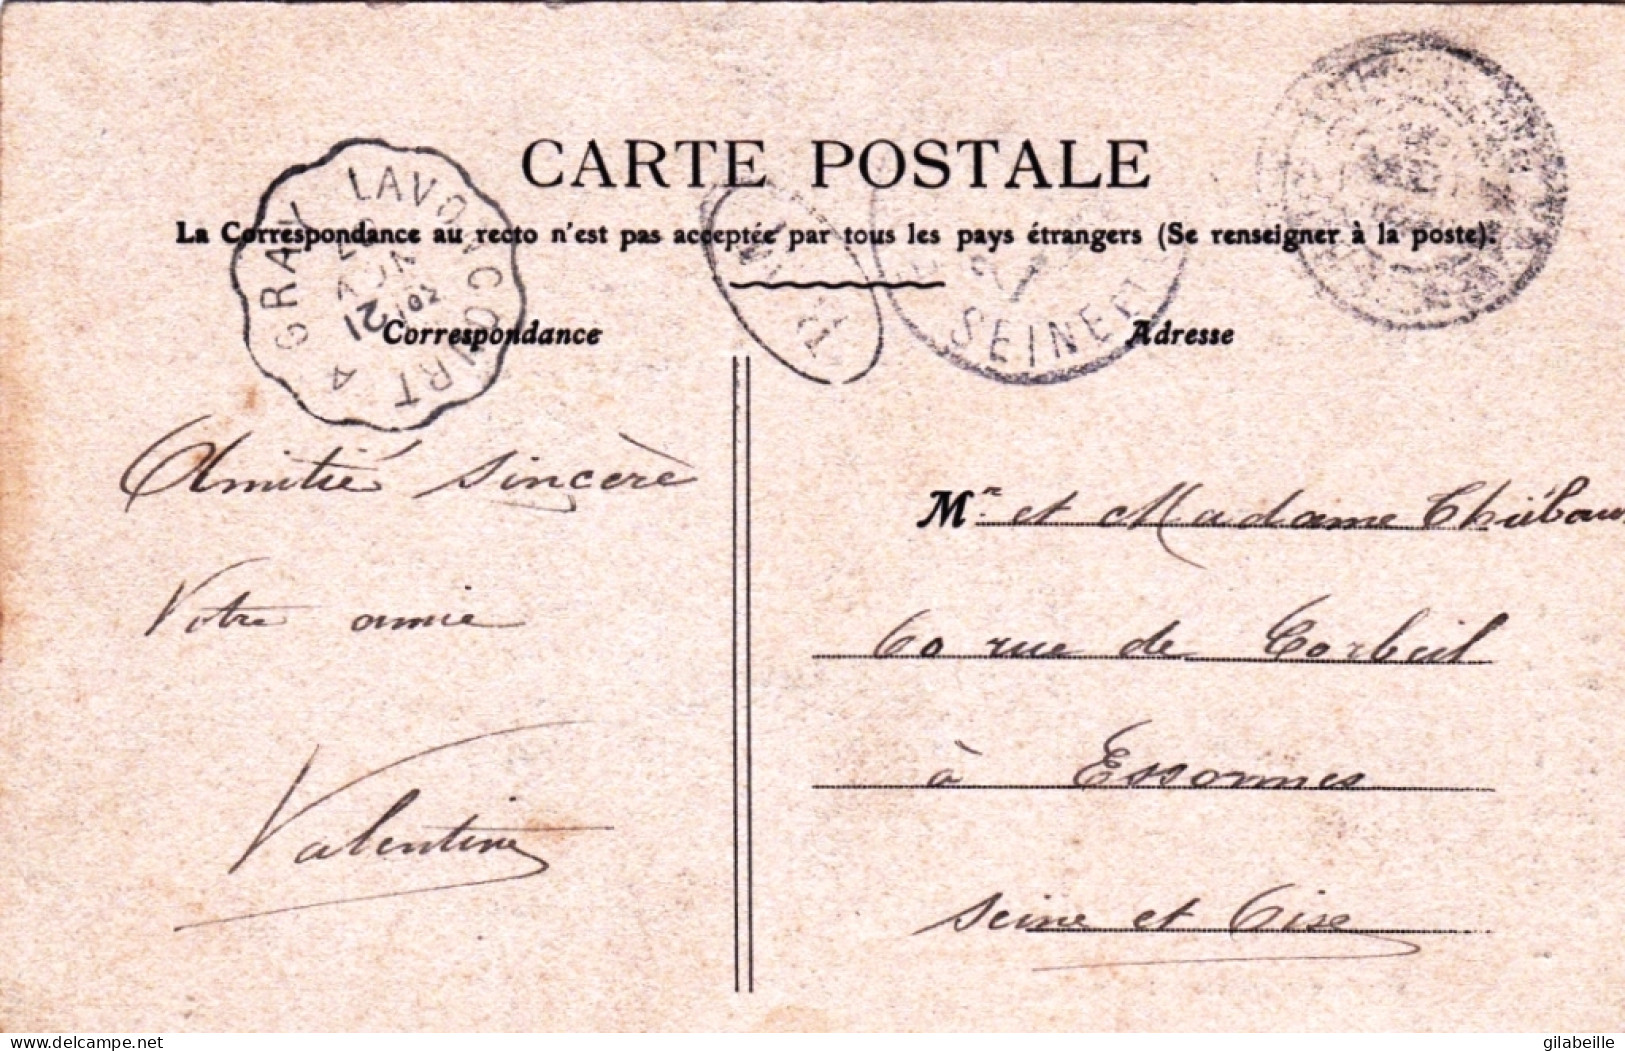 CARTE POSTALE
La Correspondance au recto n'est pas acceptée par tous les pays étrangers (Se renseigner à la poste).
LAVONCOURT A GRAY
21
SEINE ET
Correspondance
Adresse
Amitié sincère
Votre amie
Valentine
Mr. et Madame
60 rue de Corbeil
à Essonnes
Seine et Oise
delcampe.net
gilabeille